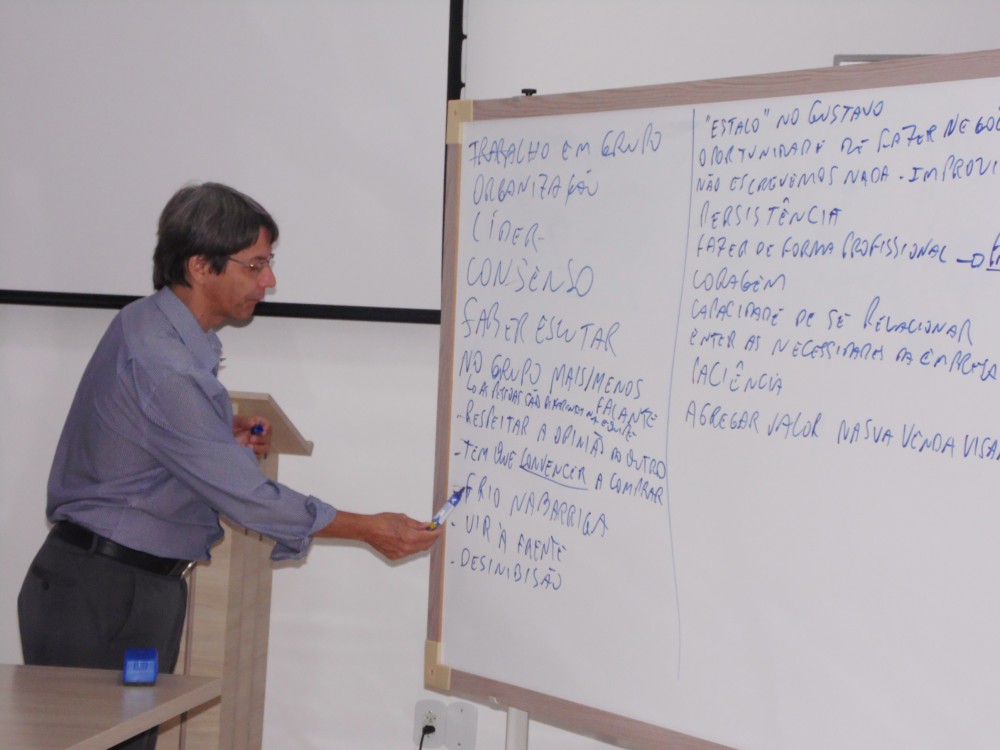 TRABALHO EM GRUPO
ORGANIZAÇÃO
LÍDER
CONSENSO
SABER ESCUTAR
NO GRUPO MAIS/MENOS
FALANTE
AS PESSOAS SÃO NA EQUIPE
- RESPEITAR A OPINIÃO DO OUTRO
- TEM QUE CONVENCER A COMPRAR
- FRIO NA BARRIGA
- VIR À FRENTE
- DESINIBISÃO
"ESTALO" NO GUSTAVO
OPORTUNIDADE DE FAZER NEGÓC
NÃO ESCREVEMOS NADA - IMPROVI
PERSISTÊNCIA
FAZER DE FORMA PROFISSIONAL
CORAGEM
CAPACIDADE DE SE RELACIONAR
ENTER AS NECESSIDADES DA EMPRESA
PACIÊNCIA
AGREGAR VALOR NA SUA VENDA VISAN